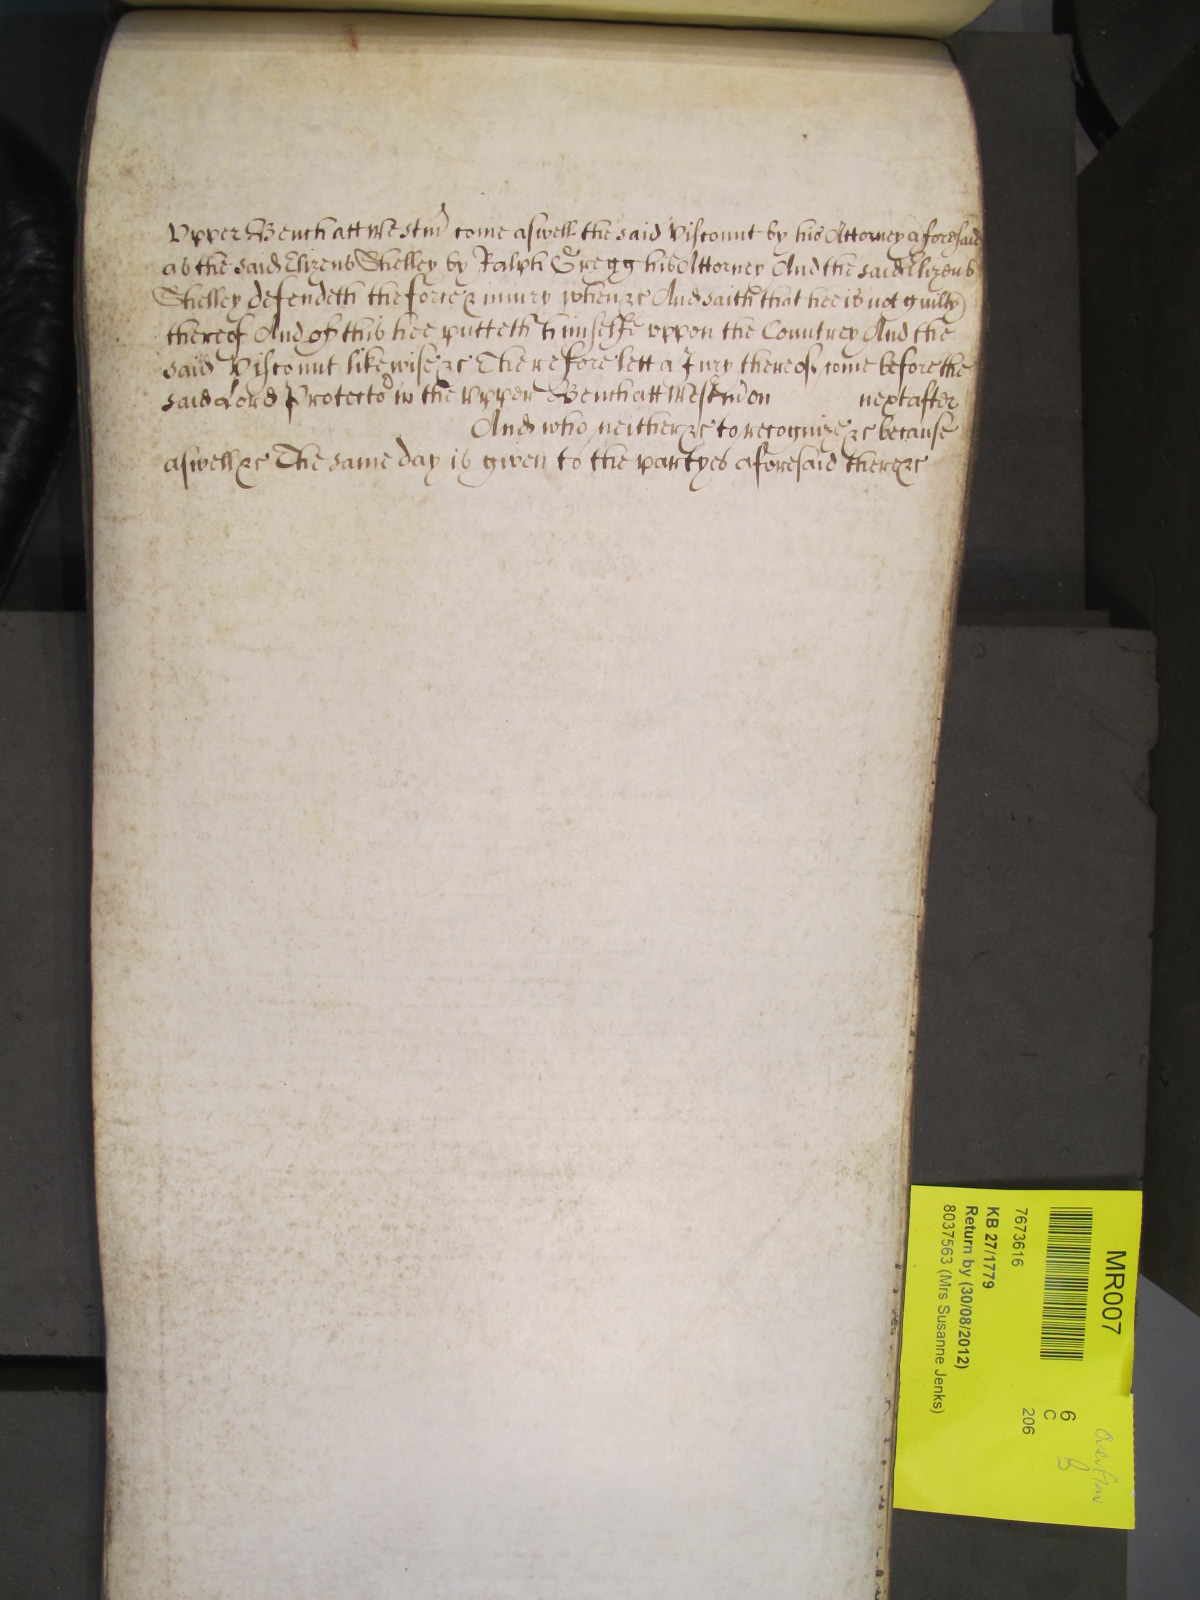 Vpper Bench att Westm come aswell the said Viscount by his Attorney aforesaid
as the said Elizeus Shelley by Ralph Gregg his Attorney And the said Elizeus
Shelley defendeth the force & iniury when &c And saith that hee is not guilty
thereof And of this hee putteth himselfe vppon the Countrey And the
said Viscount likewise &c Therefore lett a Jury thereof come before the
said Lord Protector in the Vpper Bench att Westm on next after
And who neither &c to recognize &c because
aswell &c The same day is given to the partyes aforesaid there &c
MR007
7673616
KB 27/1779
Return by (30/08/2012)
8037563 (Mrs Susanne Jenks)
6
C
206
Overflow
D